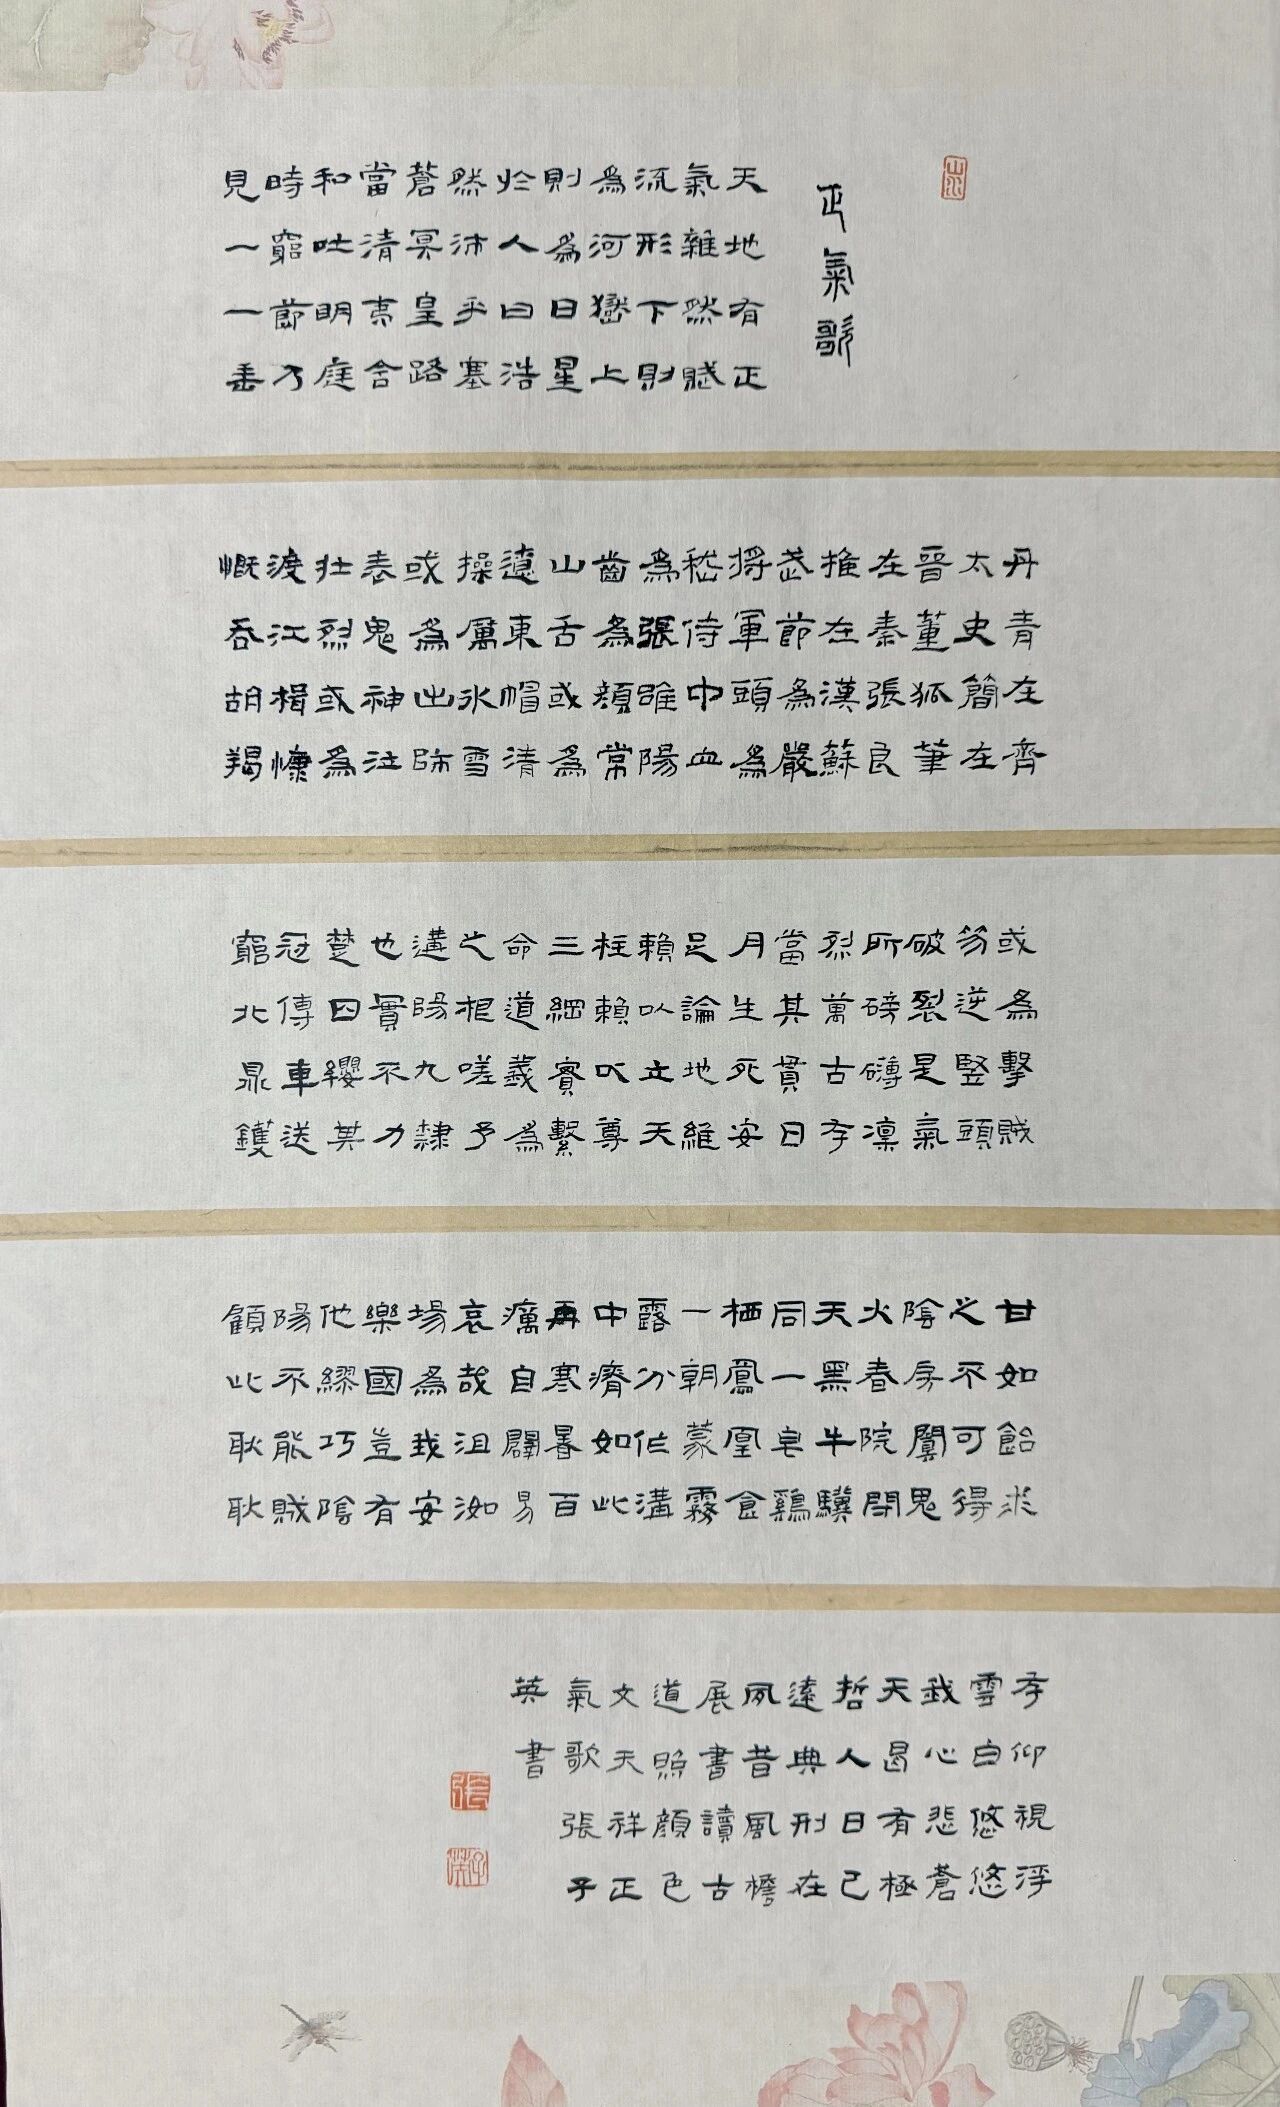 正氣歌
天地有正
氣雜然賦
流形下則
為河嶽上
則為日星
於人曰浩
然沛乎塞
蒼冥皇路
當清夷含
和吐明庭
時窮節乃
見一一垂
丹青在齊
太史簡在
晉董狐筆
在秦張良
推在漢蘇
武節為嚴
將軍頭為
嵇侍中血
為張睢陽
齒為顏常
山舌或為
遼東帽清
操厲冰雪
或為出師
表鬼神泣
壯烈或為
渡江楫慷
慨吞胡羯
或為擊賊
笏逆豎頭
破裂是氣
所磅礴凜
烈萬古存
當其貫日
月生死安
足論地維
賴以立天
柱賴以尊
三綱實繫
命道義為
之根嗟予
遘陽九隸
也實不力
楚囚纓其
冠傳車送
窮北鼎鑊
甘如飴求
之不可得
陰房闃鬼
火春院閉
天黑牛驥
同一皂鷄
栖鳳凰食
一朝蒙霧
露分作溝
中瘠如此
再寒暑百
癘自闢易
哀哉沮洳
場為我安
樂國豈有
他繆巧陰
陽不能賊
顧此耿耿
存仰視浮
雲白悠悠
我心悲蒼
天曷有極
哲人日已
遠典刑在
夙昔風檐
展書讀古
道照顏色
文天祥正
氣歌張子
英書
張